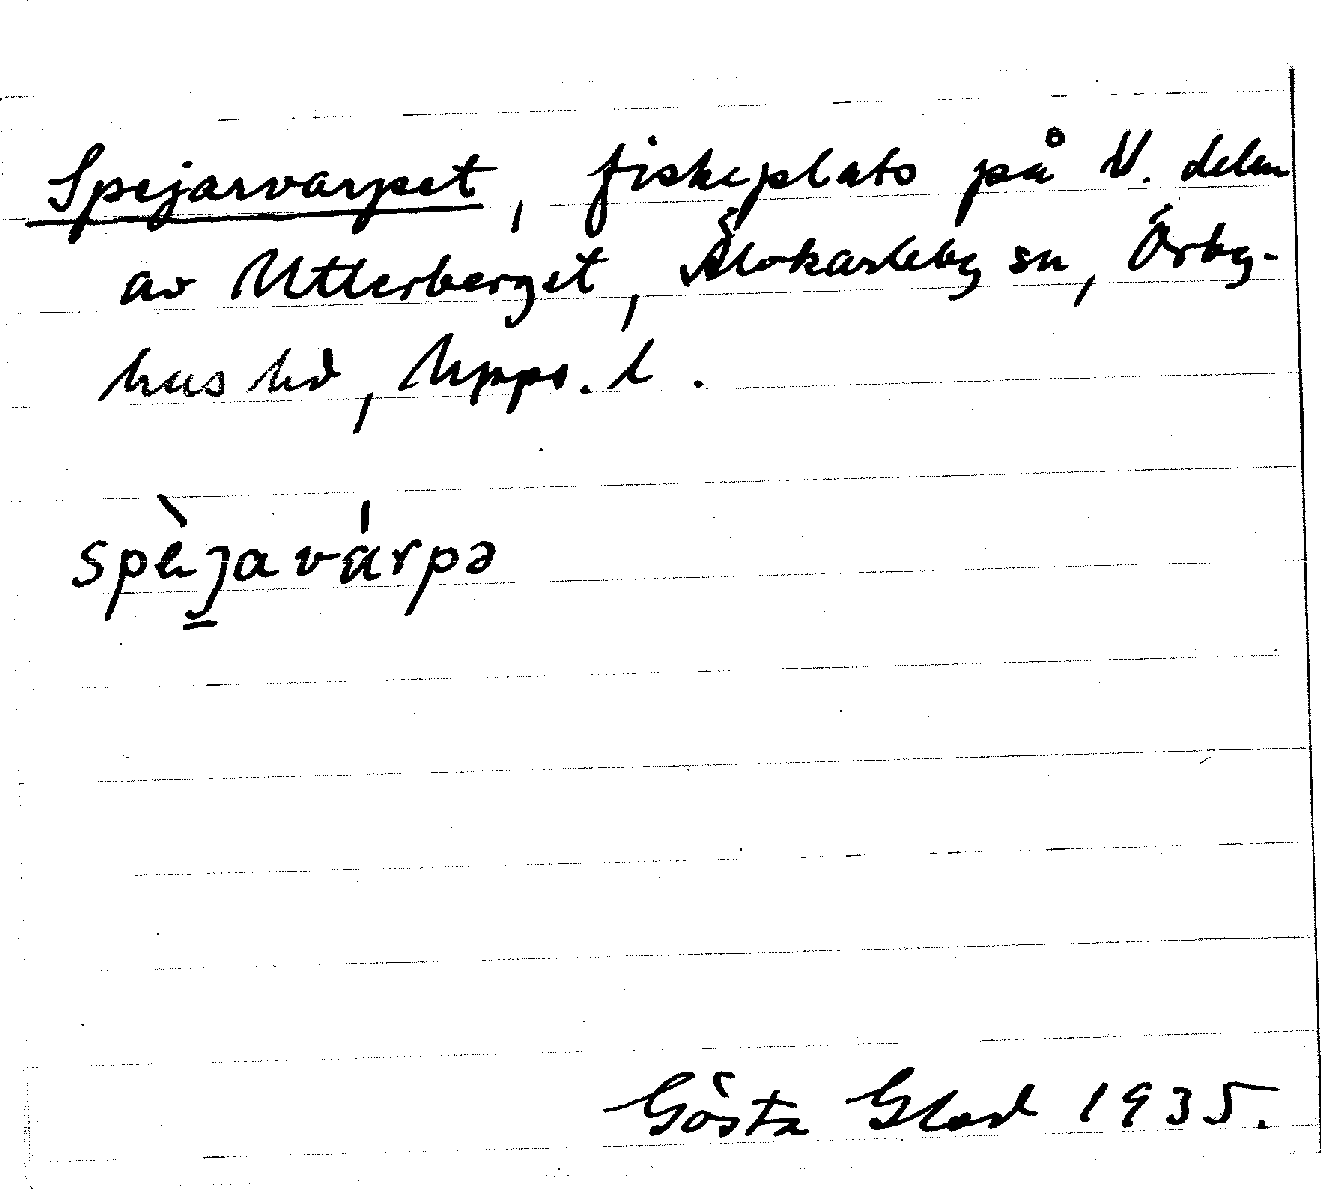 Spejarvarpet, fiskeplats på V. delen
av Utterberget, Älvkarleby sn, Örby-
hus hd, Upps. l.
spèjavárpə
Gösta Glad 1935.